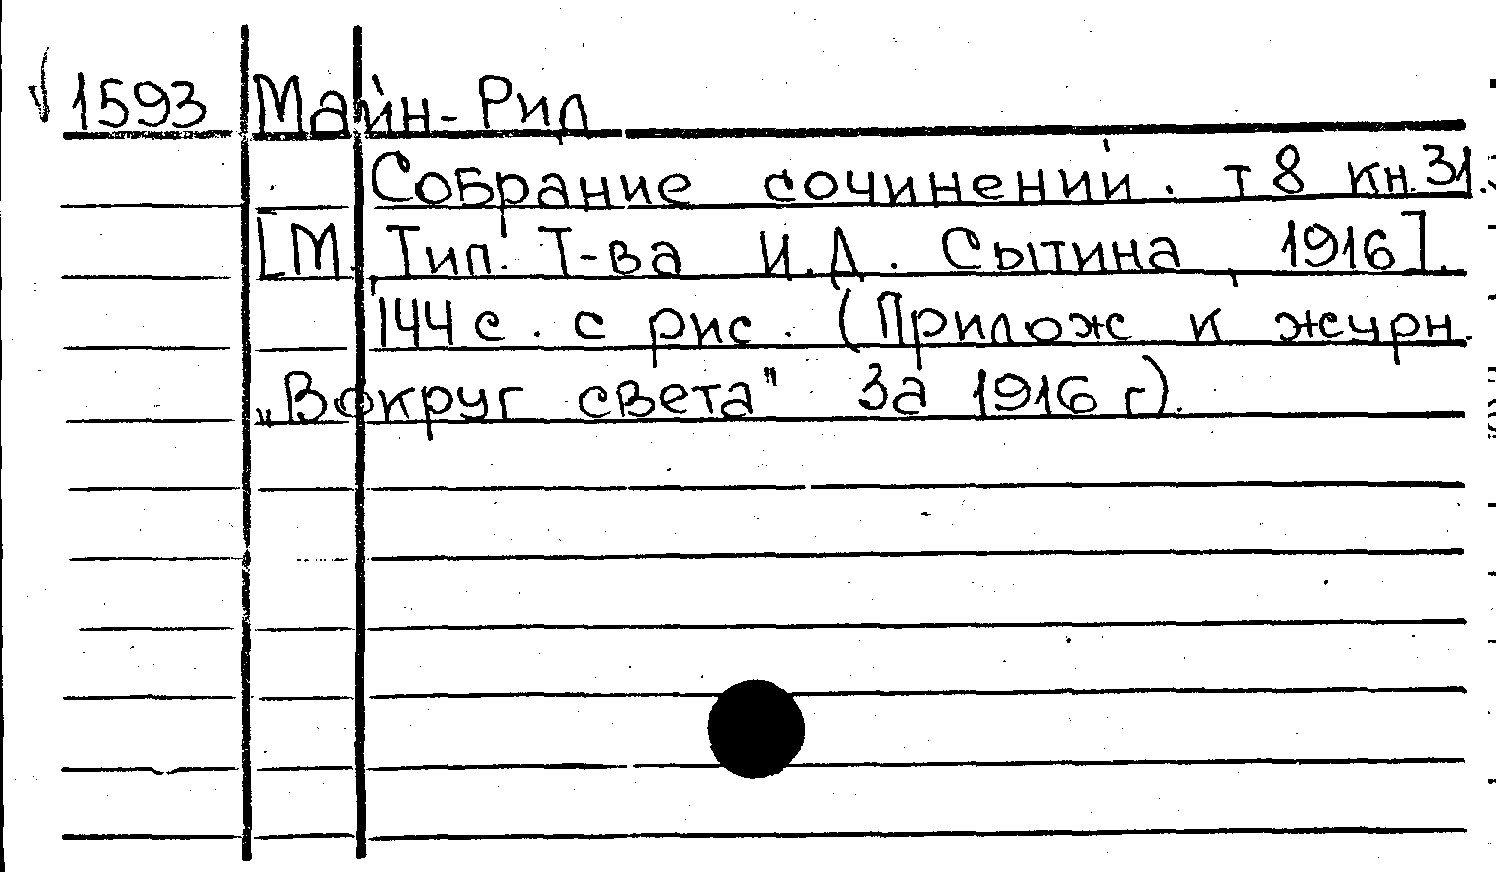 1593 Майн-Рид
Собрание сочинений. т 8 кн. 31.
[М. Тип. Т-ва И.Д. Сытина, 1916].
144 с. с рис. (Прилож к журн.
„Вокруг света" за 1916 г).